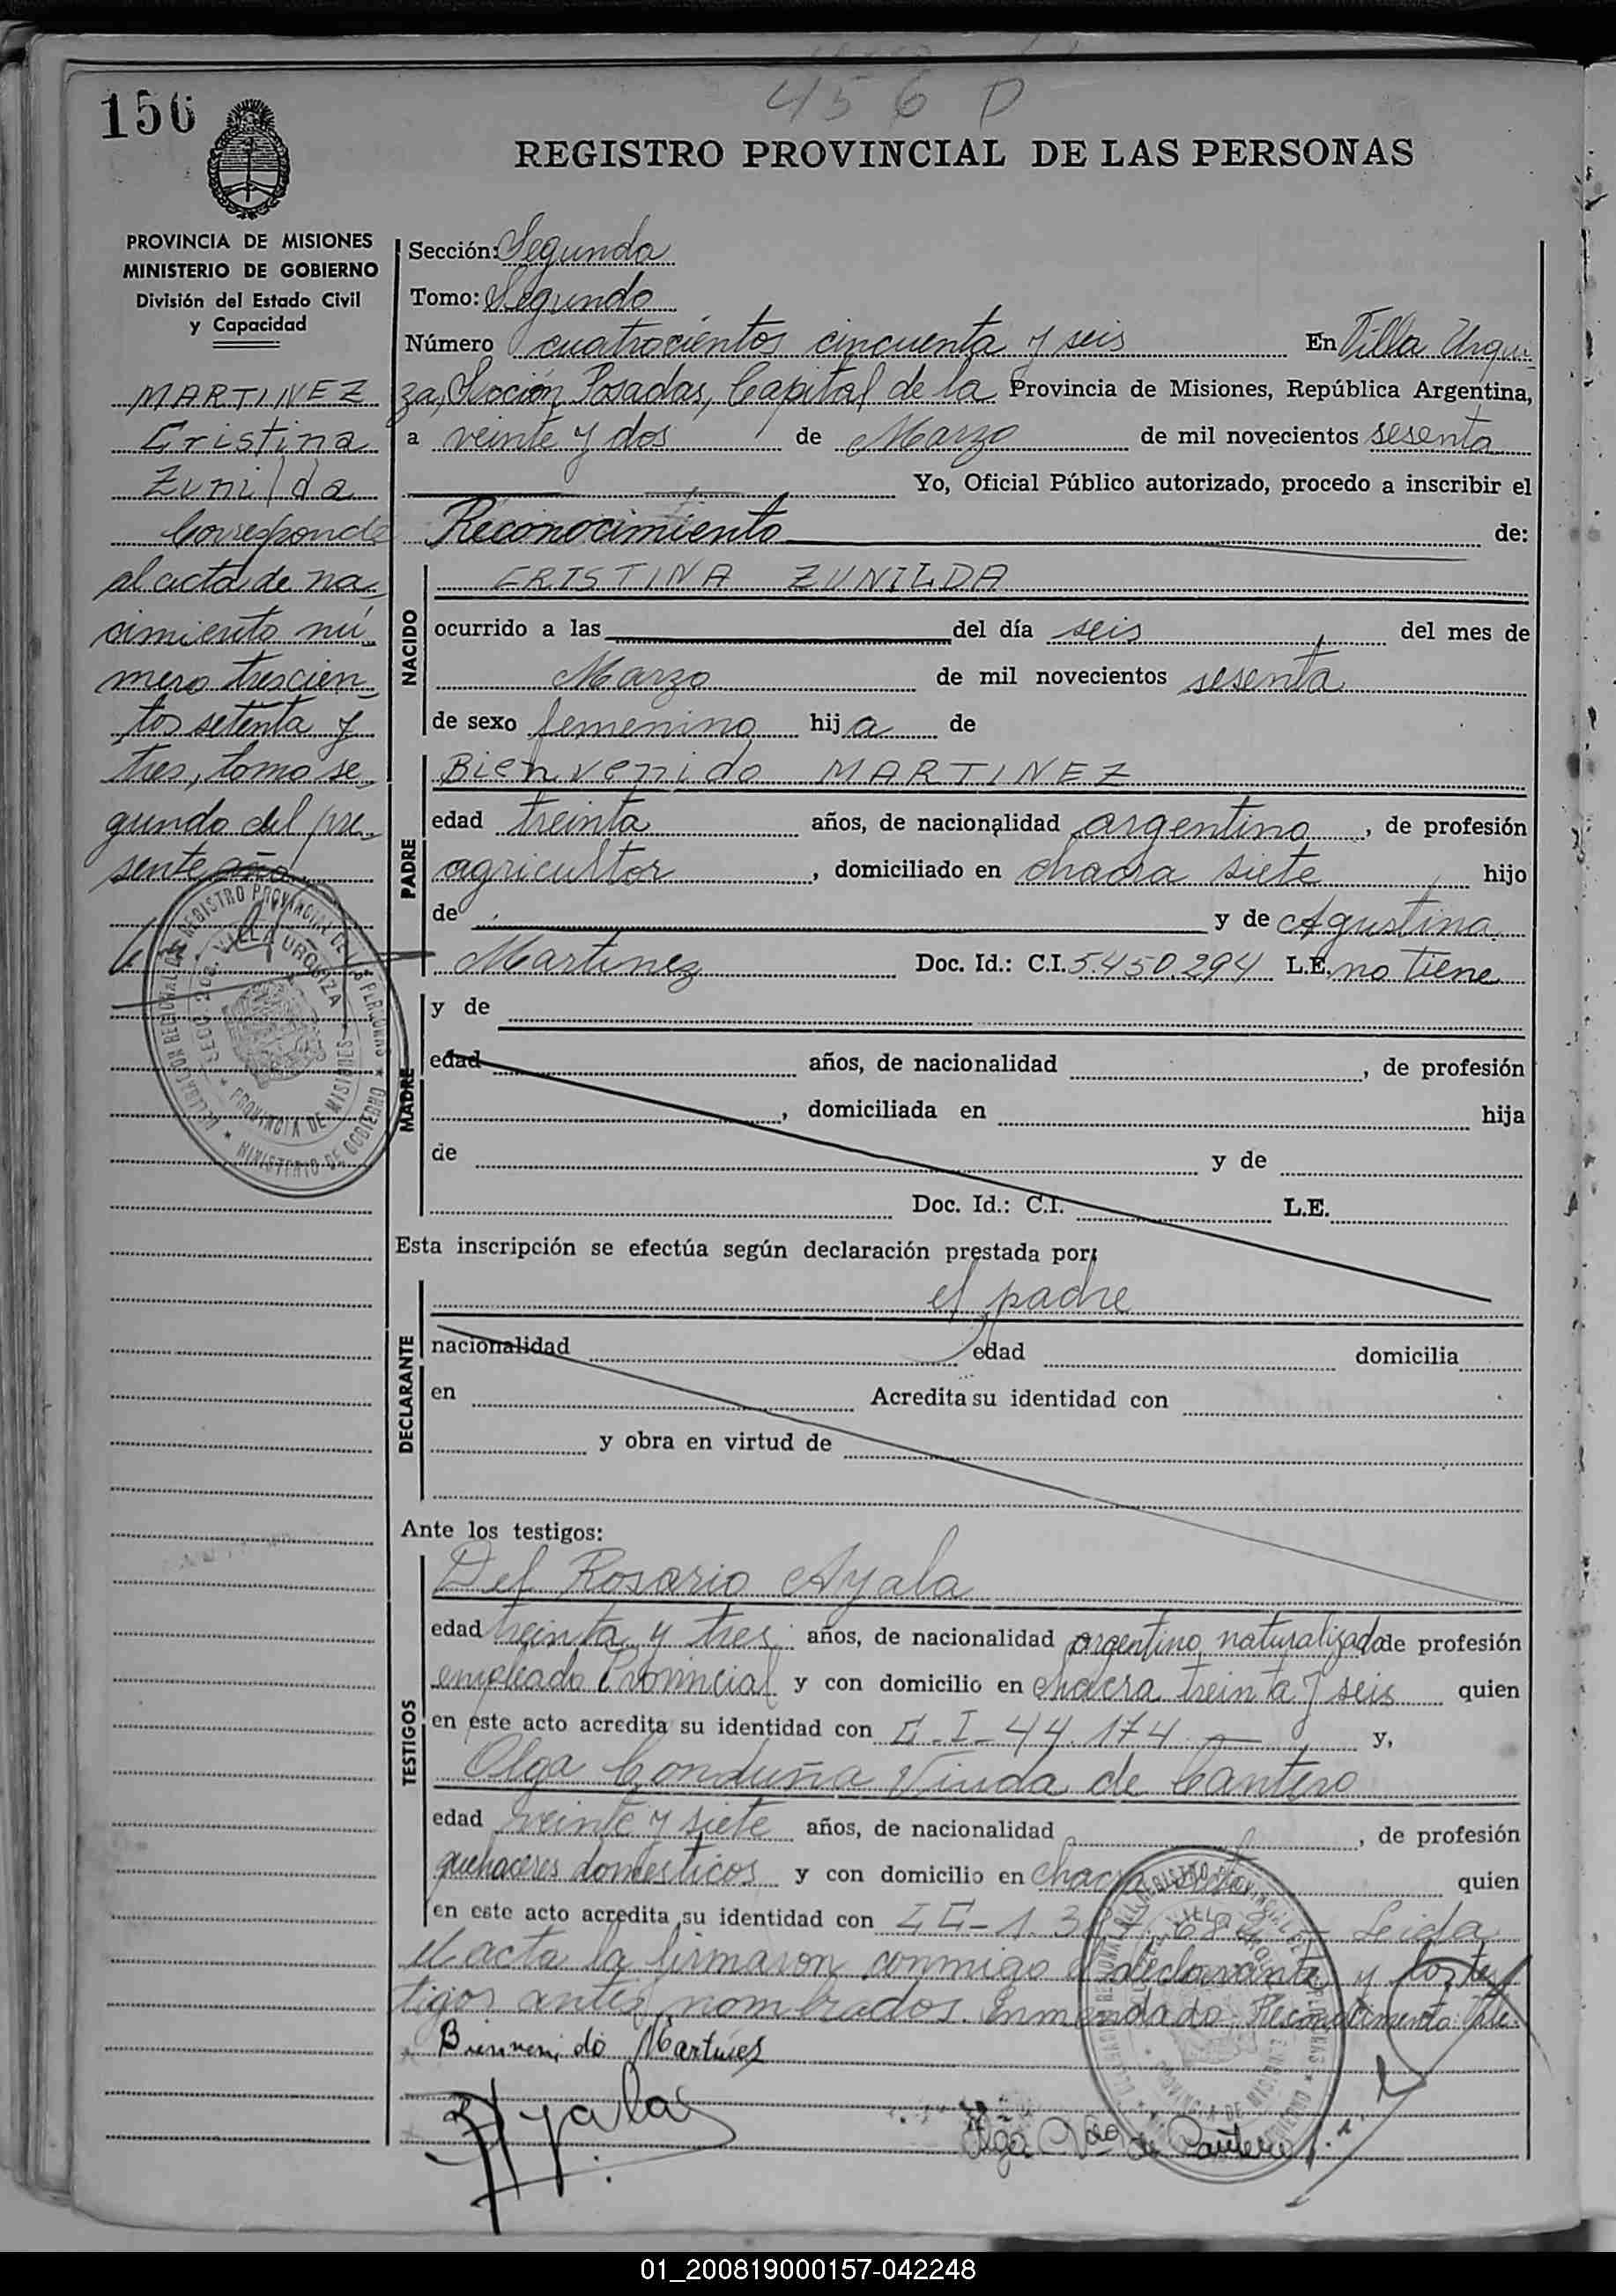 456 D
156
REGISTRO PROVINCIAL DE LAS PERSONAS
PROVINCIA DE MISIONES
MINISTERIO DE GOBIERNO
División del Estado Civil
y Capacidad
MARTINEZ
Cristina
Zunilda
Corresponde
al acta de na-
cimiento nú-
mero trescien-
tos setenta y
tres, tomo se-
gundo del pre-
sente año.
Sección: Segunda
Tomo: Segundo
Número cuatrocientos cincuenta y seis En Villa Urqui-
za, Sección Posadas, Capital de la Provincia de Misiones, República Argentina,
a veinte y dos de Marzo de mil novecientos sesenta
Yo, Oficial Público autorizado, procedo a inscribir el
Reconocimiento de:
NACIDO
CRISTINA ZUNILDA
ocurrido a las del día seis del mes de
Marzo de mil novecientos sesenta
de sexo femenino hija de
PADRE
Bienvenido MARTINEZ
edad treinta años, de nacionalidad argentino, de profesión
agricultor, domiciliado en chacra siete hijo
de y de Agustina
Martinez Doc. Id.: C.I. 5.450.294 L.E. no tiene
MADRE
y de
edad años, de nacionalidad , de profesión
, domiciliada en hija
de y de
Doc. Id.: C.I. L.E.
Esta inscripción se efectúa según declaración prestada por:
DECLARANTE
el padre
nacionalidad edad domicilia
en Acredita su identidad con
y obra en virtud de
Ante los testigos:
TESTIGOS
Del Rosario Ayala
edad treinta y tres años, de nacionalidad argentino naturalizado de profesión
empleado Provincial y con domicilio en chacra treinta y seis quien
en este acto acredita su identidad con C.I- 44.174 y,
Olga Conduña Viuda de Cantero
edad veinte y siete años, de nacionalidad , de profesión
quehaceres domesticos y con domicilio en chacra quien
en este acto acredita su identidad con Leida
el acta la firmaron conmigo el declarante y los tes-
tigos antes nombrados. Enmendado Reconocimiento:
Bienvenido Martines
Ayala
Olga Vda de Cantero
01_200819000157-042248